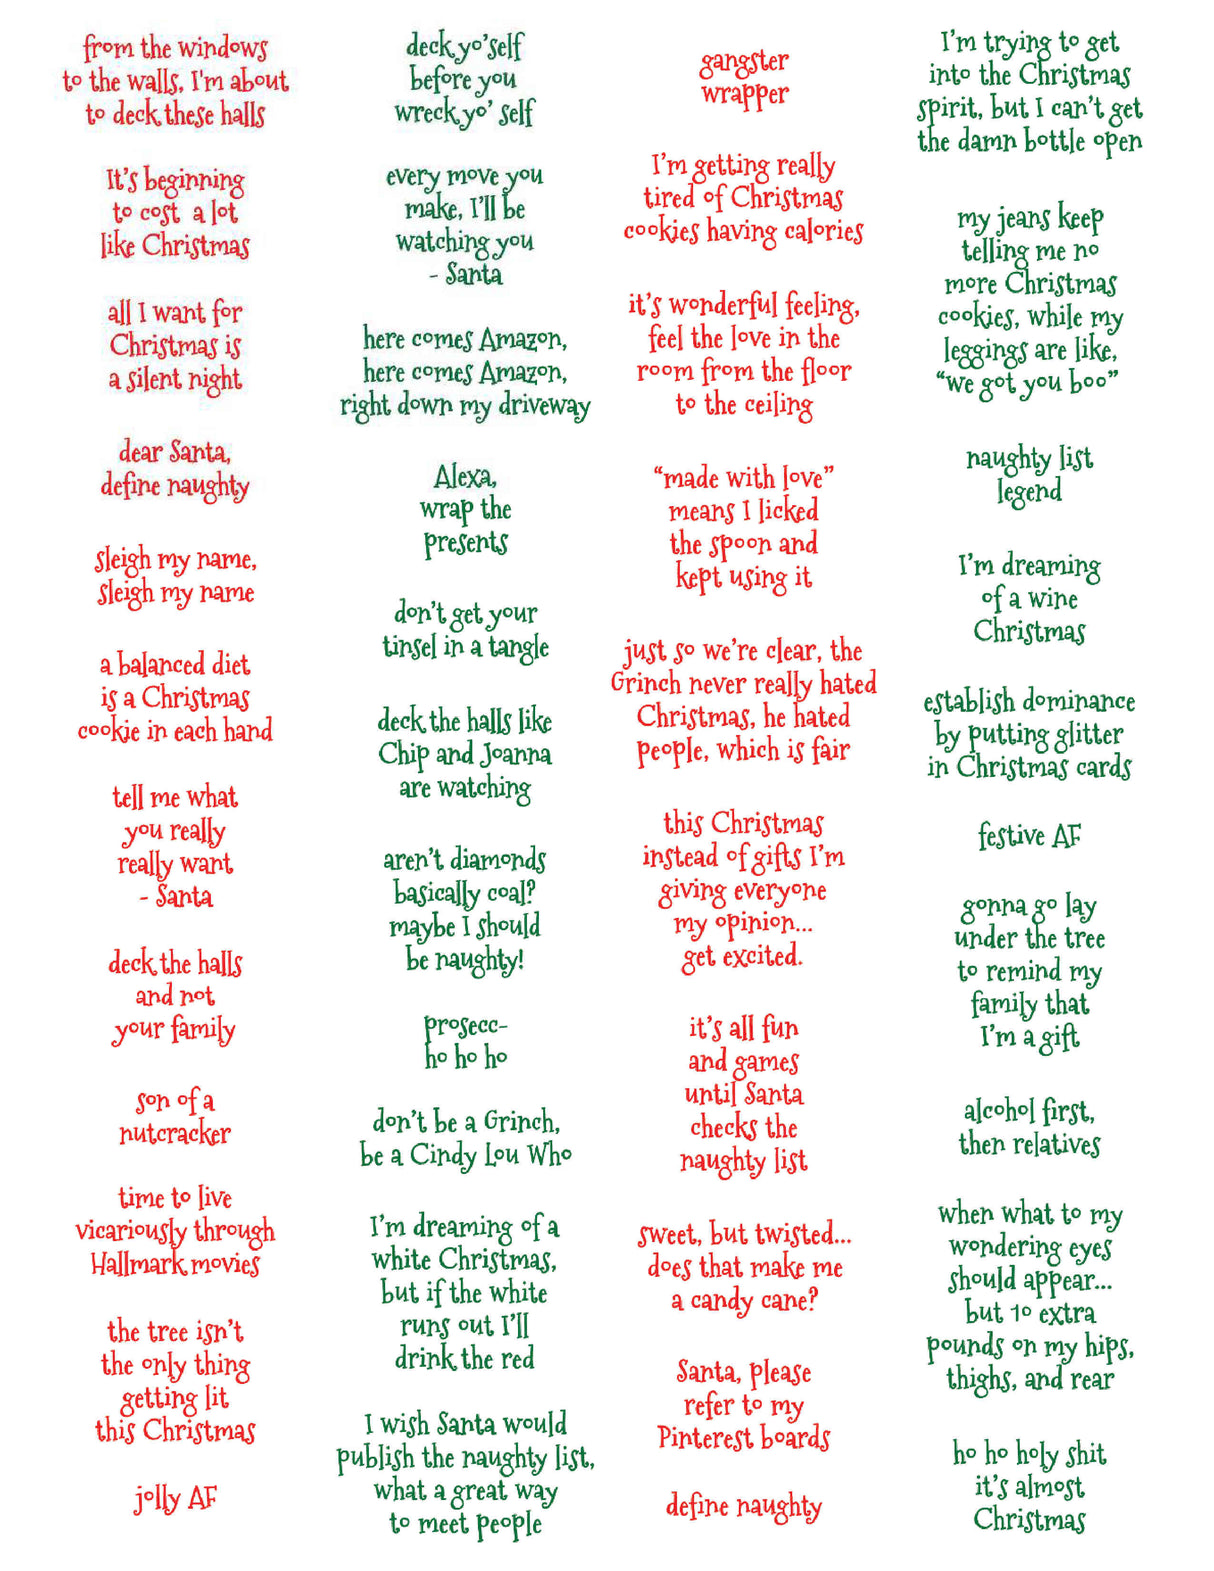 from the windows
to the walls, I'm about
to deck these halls
It's beginning
to cost a lot
like Christmas
all I want for
Christmas is
a silent night
dear Santa,
define naughty
sleigh my name,
sleigh my name
a balanced diet
is a Christmas
cookie in each hand
tell me what
you really
really want
- Santa
deck the halls
and not
your family
son of a
nutcracker
time to live
vicariously through
Hallmark movies
the tree isn't
the only thing
getting lit
this Christmas
jolly AF
deck yo'self
before you
wreck yo' self
every move you
make, I'll be
watching you
- Santa
here comes Amazon,
here comes Amazon,
right down my driveway
Alexa,
wrap the
presents
don't get your
tinsel in a tangle
deck the halls like
Chip and Joanna
are watching
aren't diamonds
basically coal?
maybe I should
be naughty!
prosecc-
ho ho ho
don't be a Grinch,
be a Cindy Lou Who
I'm dreaming of a
white Christmas,
but if the white
runs out I'll
drink the red
I wish Santa would
publish the naughty list,
what a great way
to meet people
gangster
wrapper
I'm getting really
tired of Christmas
cookies having calories
it's wonderful feeling,
feel the love in the
room from the floor
to the ceiling
"made with love"
means I licked
the spoon and
kept using it
just so we're clear, the
Grinch never really hated
Christmas, he hated
people, which is fair
this Christmas
instead of gifts I'm
giving everyone
my opinion...
get excited.
it's all fun
and games
until Santa
checks the
naughty list
sweet, but twisted...
does that make me
a candy cane?
Santa, please
refer to my
Pinterest boards
define naughty
I'm trying to get
into the Christmas
spirit, but I can't get
the damn bottle open
my jeans keep
telling me no
more Christmas
cookies, while my
leggings are like,
"we got you boo"
naughty list
legend
I'm dreaming
of a wine
Christmas
establish dominance
by putting glitter
in Christmas cards
festive AF
gonna go lay
under the tree
to remind my
family that
I'm a gift
alcohol first,
then relatives
when what to my
wondering eyes
should appear...
but 10 extra
pounds on my hips,
thighs, and rear
ho ho holy shit
it's almost
Christmas